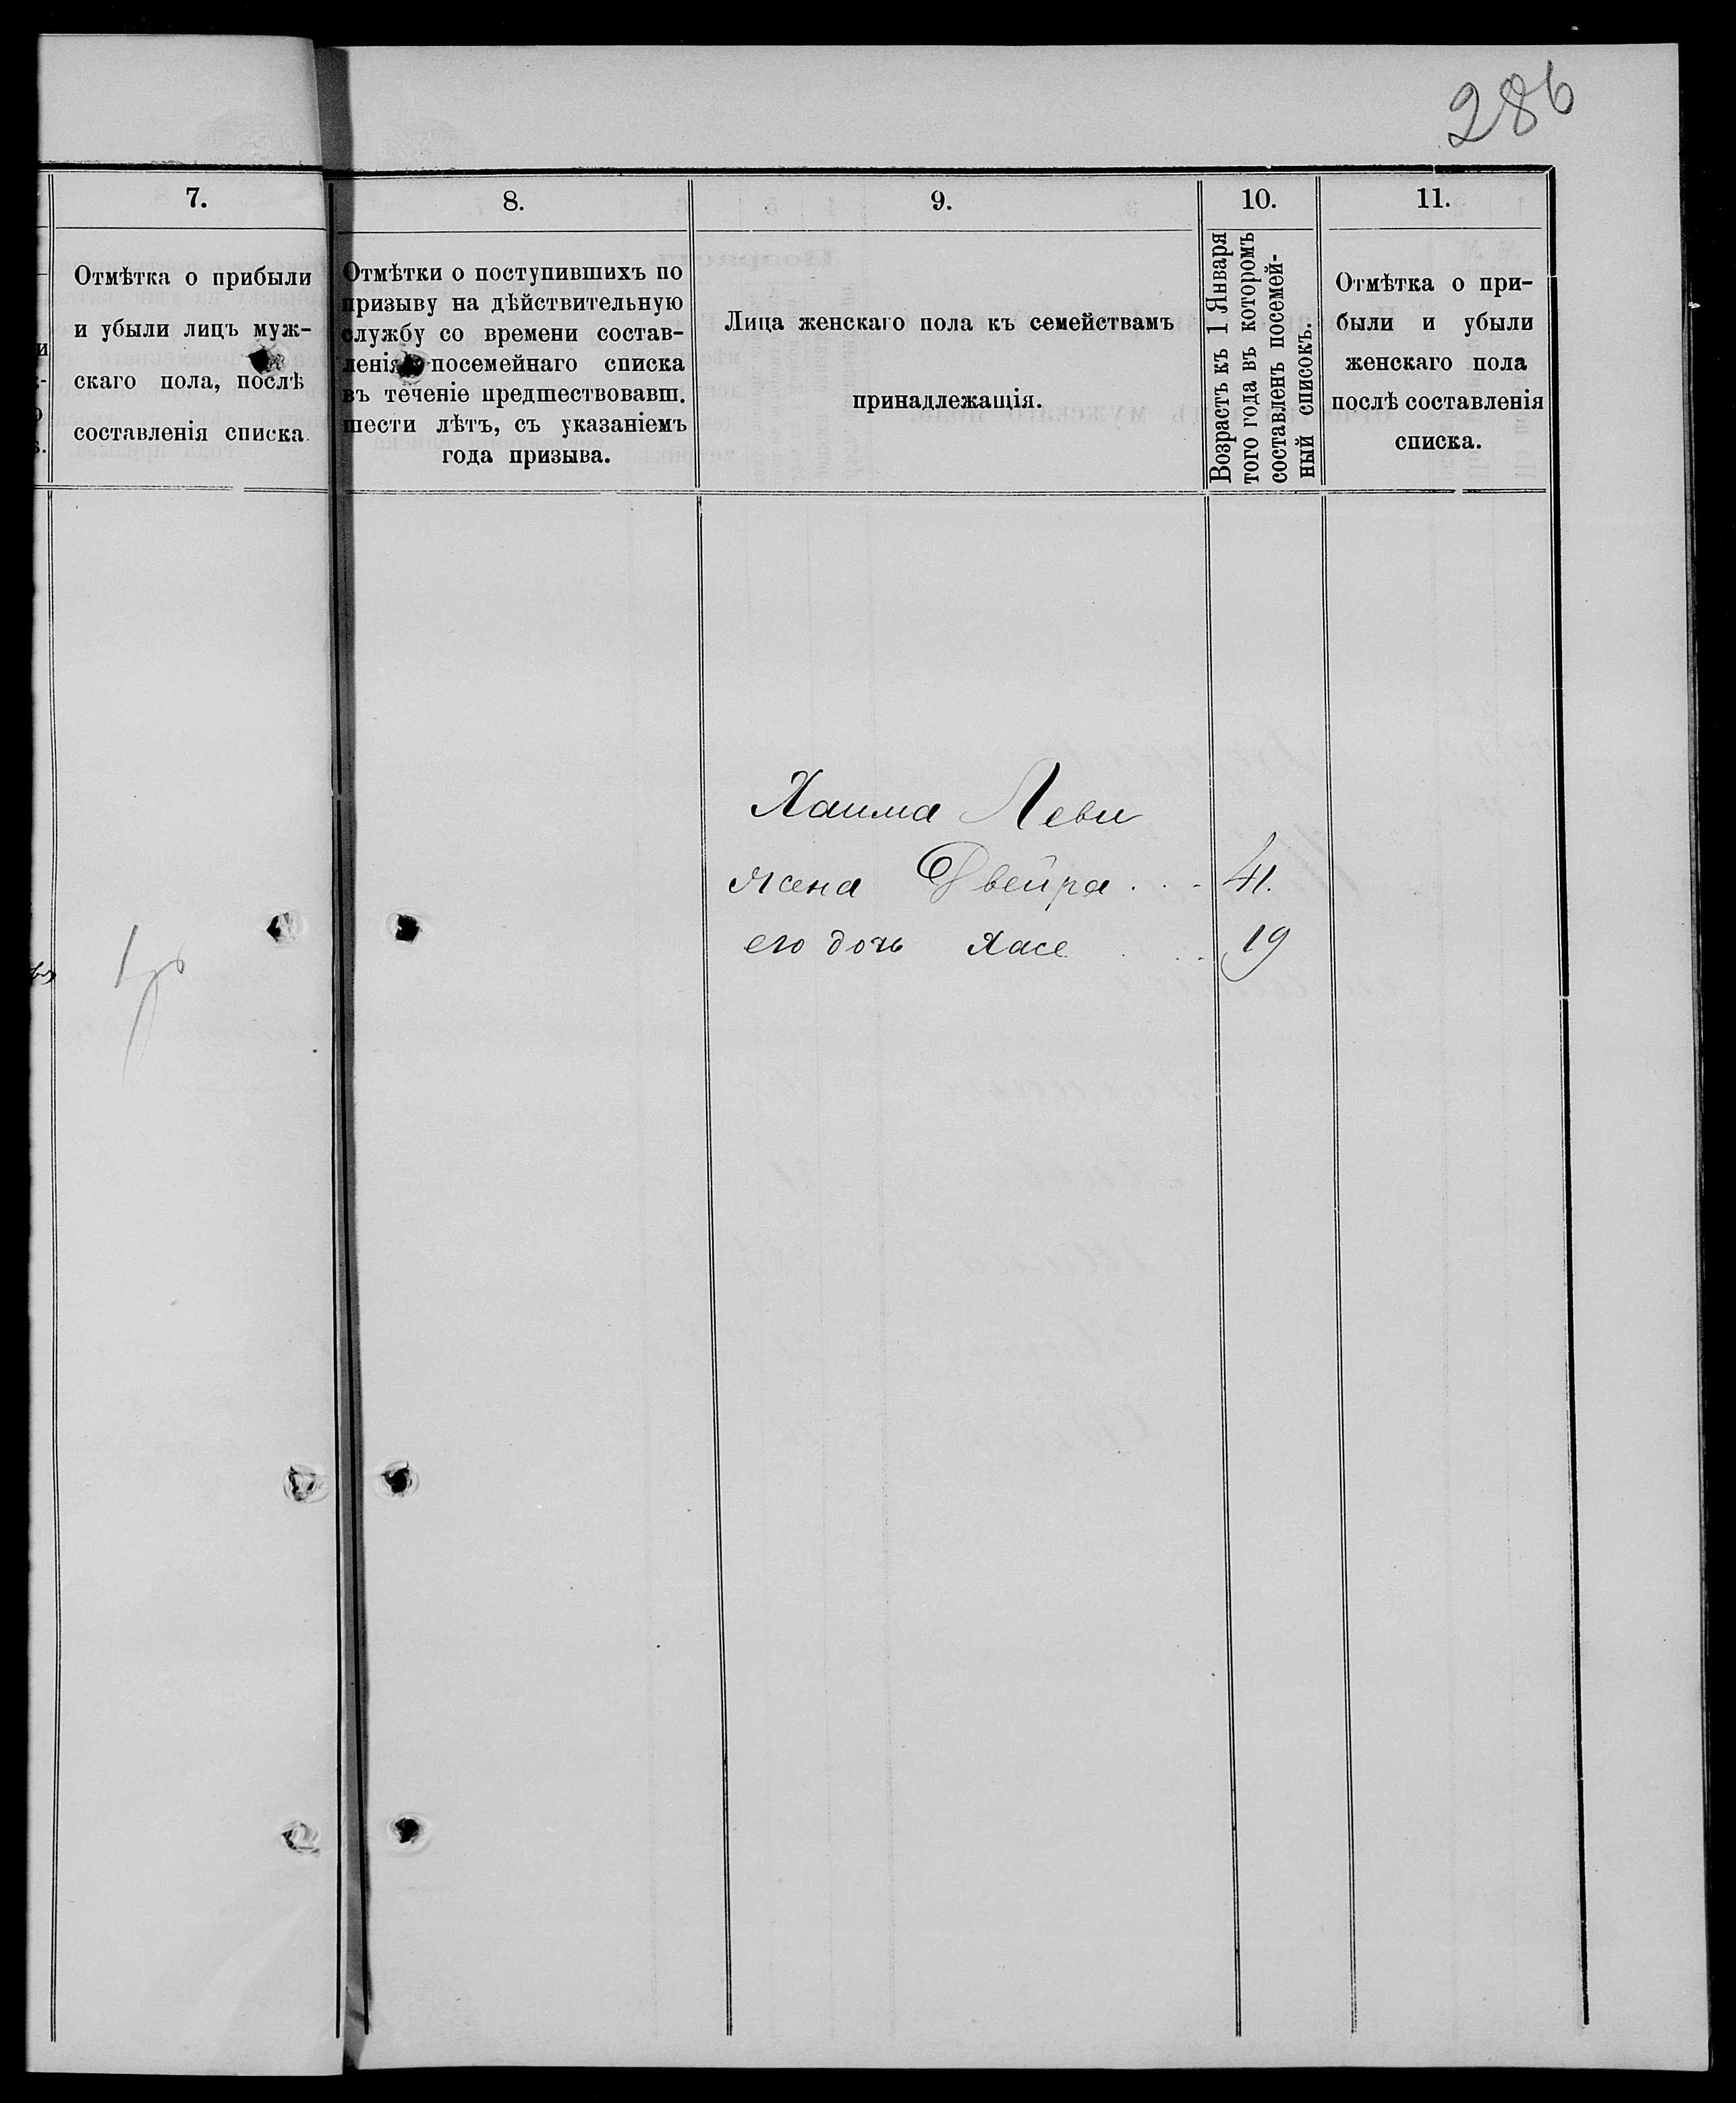 286
7.
Отмѣтка о прибыли
и убыли лицъ муж-
скаго пола, послѣ
составленія списка.
8.
Отмѣтки о поступившихъ по
призыву на дѣйствительную
службу со времени состав-
ленія посемейнаго списка
въ теченіе предшествовавш.
шести лѣтъ, съ указаніемъ
года призыва.
9.
Лица женскаго пола къ семействамъ
принадлежащія.
10.
Возрастъ къ 1 Января
того года въ которомъ
составленъ посемей-
ный списокъ.
11.
Отмѣтка о при-
были и убыли
женскаго пола
послѣ составленія
списка.
Хаима Леви
жена Двейра . . - 41.
его дочь Хасе . . . 19